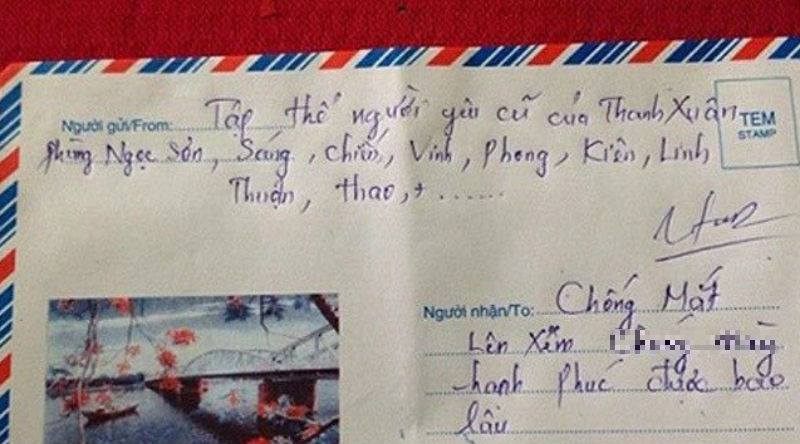 Người gửi/From: Tập thể người yêu cũ của Thanh Xuân
TEM
STAMP
Phùng Ngọc Sơn, Sáng, Chiến, Vinh, Phong, Kiên, Linh
Thuận, thao, + ......
Người nhận/To: Chống Mắt
Lên Xem
hanh phuc được bao
lâu